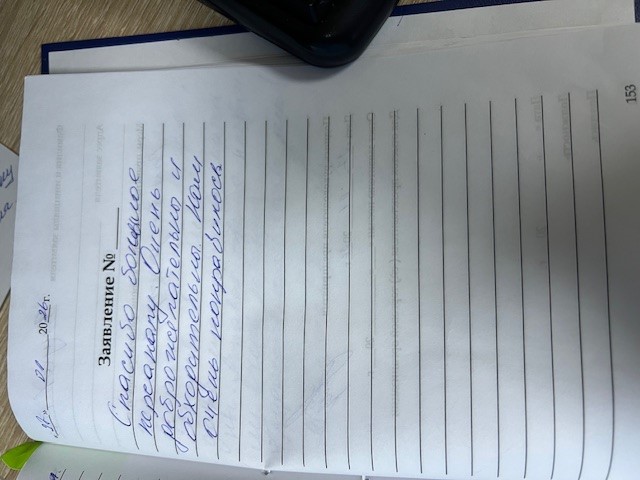 2026г.
Заявление №
Спасибо большое
персоналу. Очень
доброжелательно и
обходительно. Нам
очень понравилось
153